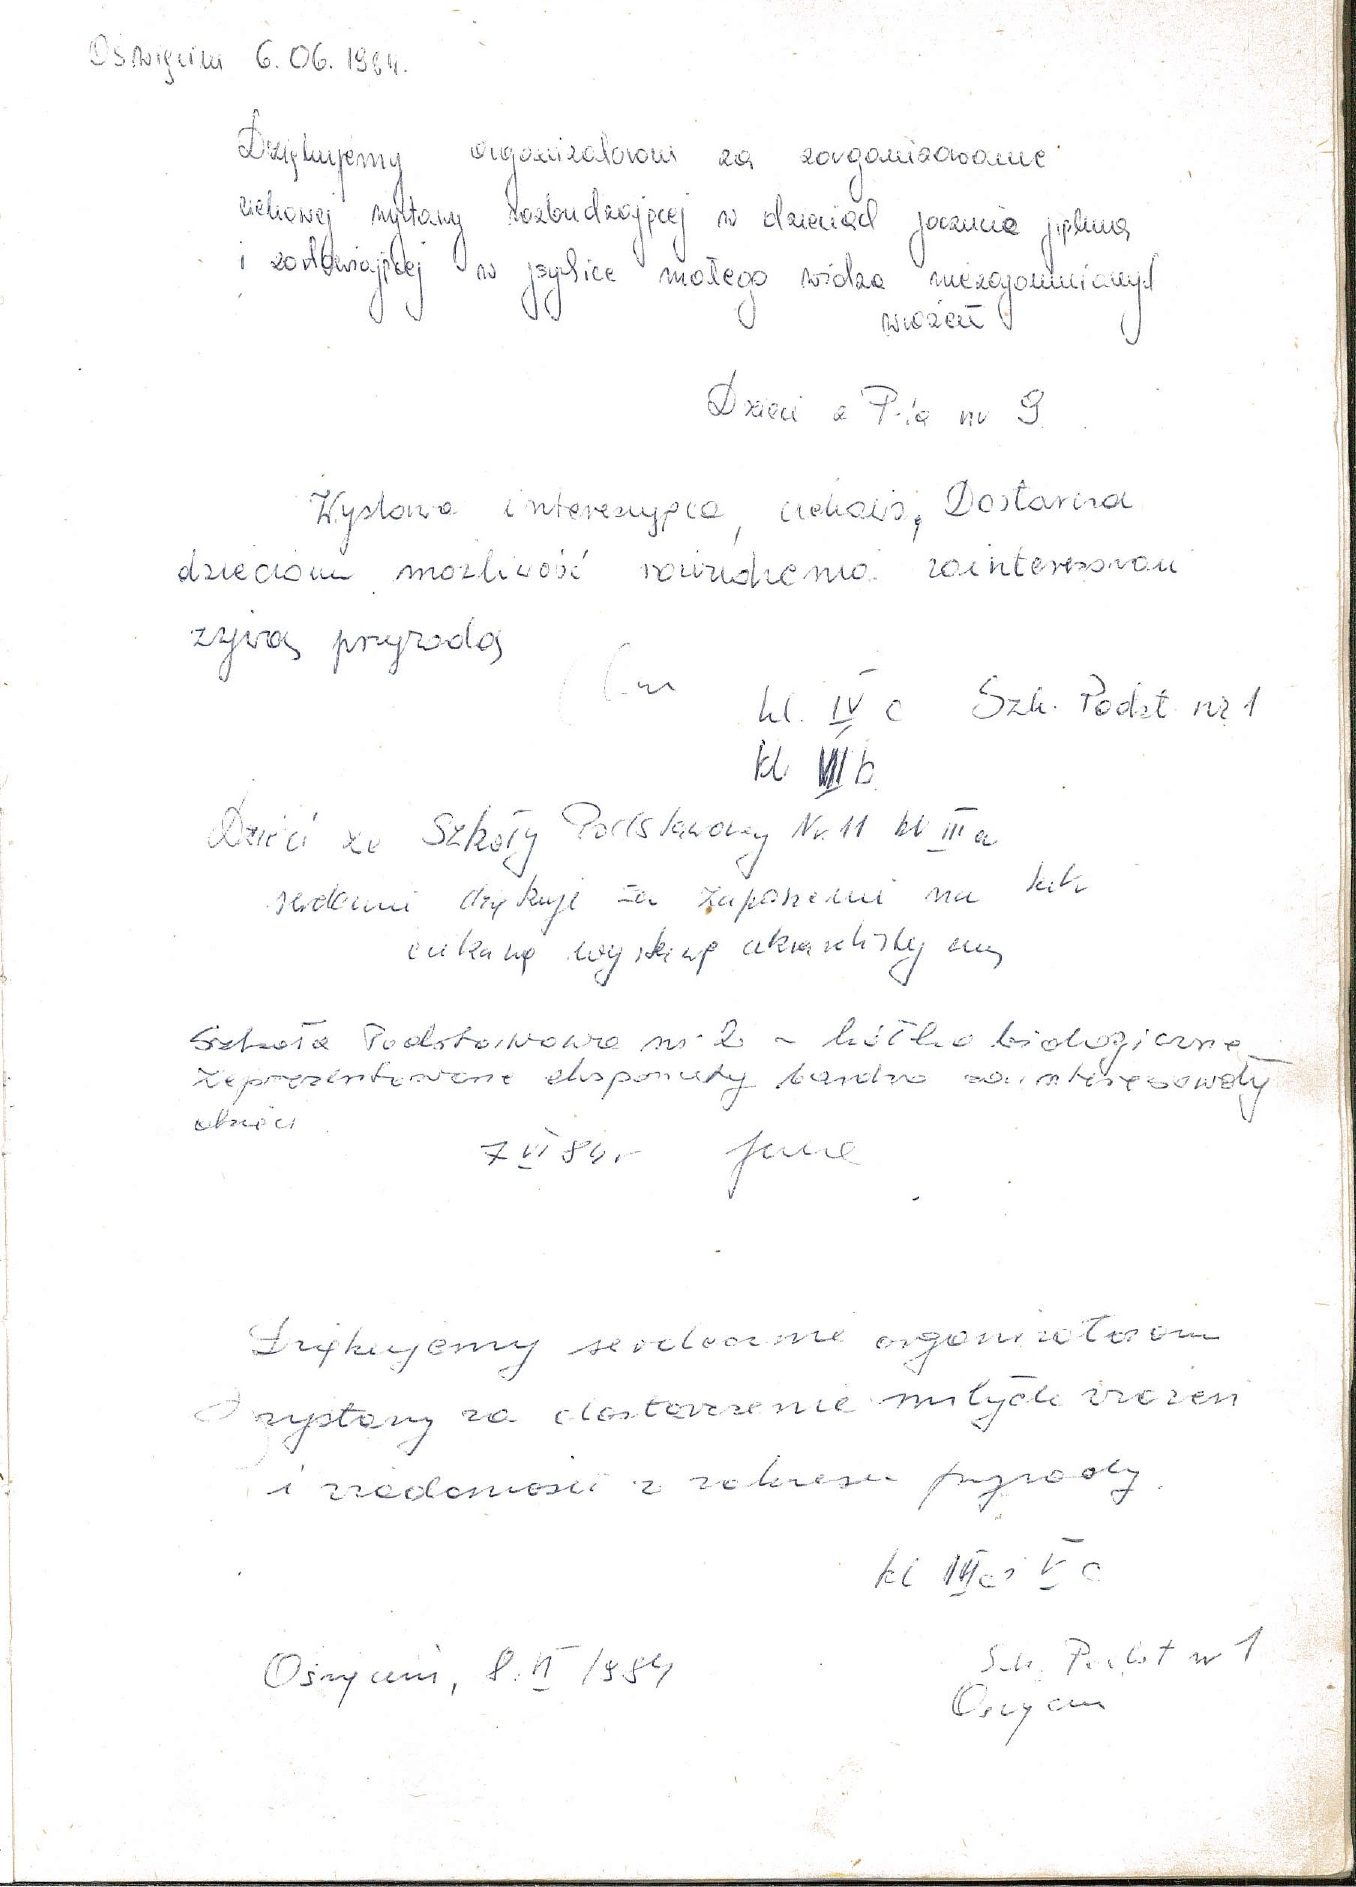 Oświęcim 6.06.1984.
Dziękujemy organizatorom za zorganizowanie
ciekawej wystawy rozbudzającej w dzieciach poczucie piękna
i zostawiającej w psychice małego widza niezapomnianych
wrażeń
Dzieci z P-la nr 9
Wystawa interesująca, ciekawa, Dostarcza
dzieciom możliwość rozwidzenia zainteresowań
żywą przyrodą
kl. IV c Szk. Podst. nr 1
kl VII b
Dzieci ze Szkoły Podstawowej Nr 11 kl III a
serdecznie dziękuje za zaproszenie na tak
ciekawą wystawę akwarystyczną
Szkoła Podstawowa nr 2 - kółko biologiczne
Zaprezentowane eksponaty bardzo zainteresowały
dzieci
7 VI 84 r
Dziękujemy serdecznie organizatorom
wystawy za dostarczenie miłych wrażeń
i wiadomości z zakresu przyrody.
kl III c i V c
Oświęcim, 8. VI 1984
Szk. Podst nr 1
Oświęcim